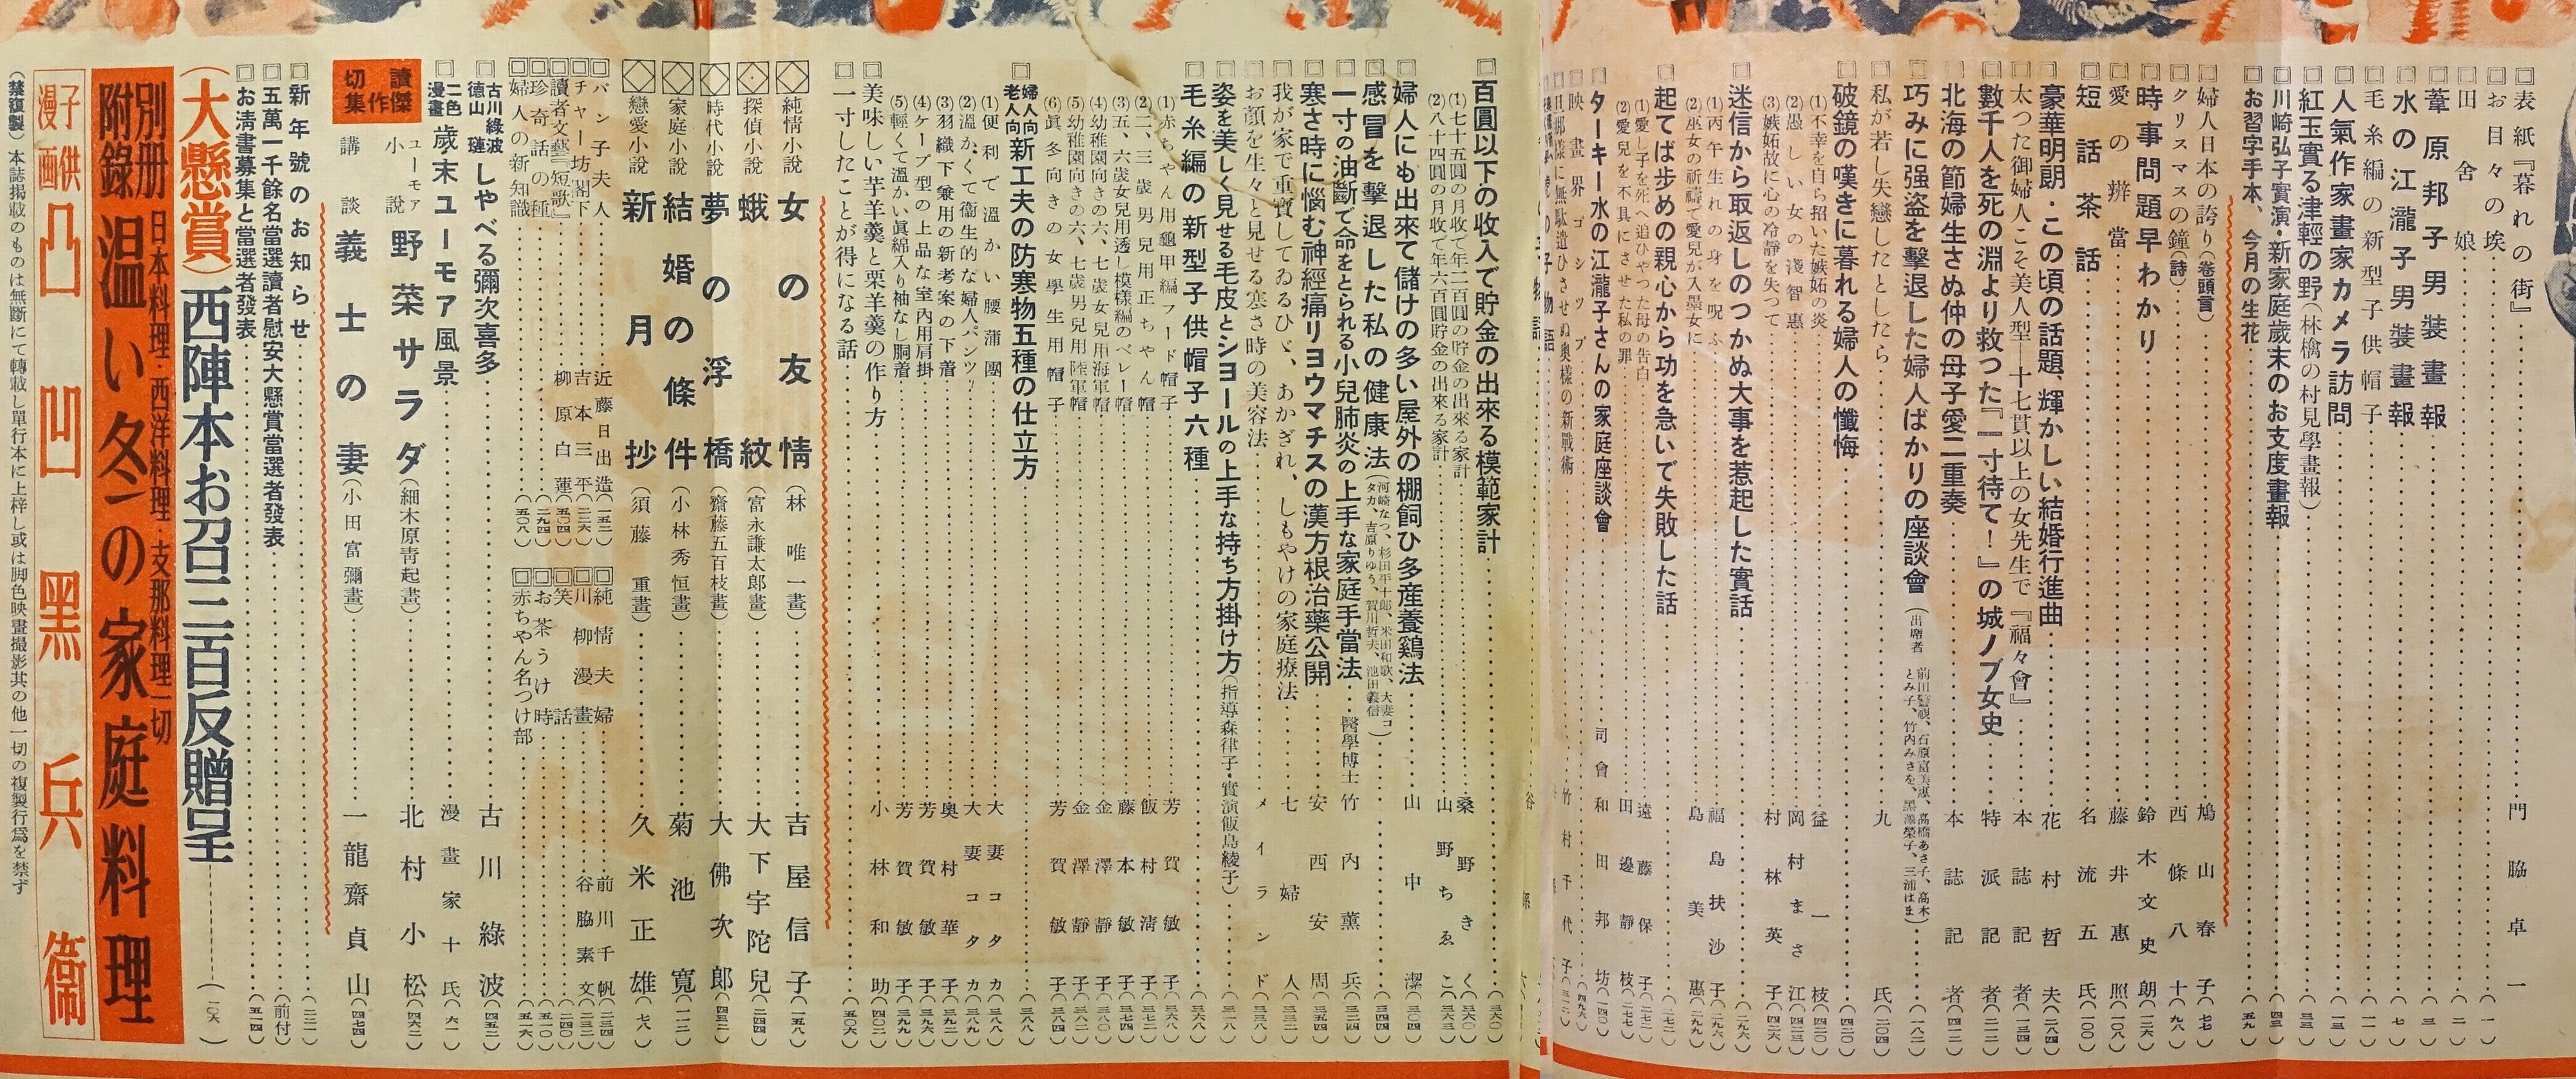 表紙『暮れの街』 門脇卓一（一）
お目々の埃
田舎娘（二）
葦原邦子男装畫報（三）
水の江瀧子男装畫報（七）
毛糸編の新型子供帽子（一一）
人氣作家畫家カメラ訪問（一三）
紅玉實る津輕の野（林檎の村見學畫報）（三三）
川崎弘子實演・新家庭歳末のお支度畫報（四三）
お習字手本、今月の生花（五九）
婦人日本の誇り（巻頭言） 鳩山春子（七七）
クリスマスの鐘（詩） 西條八十（九八）
時事問題早わかり 鈴木文史朗（一二六）
愛の辨當 藤井惠照（一〇八）
短話茶話 名流五氏（一〇〇）
豪華明朗・この頃の話題、輝かしい結婚行進曲 花村哲夫（二八四）
太つた御婦人こそ美人型―十七貫以上の女先生で『福々會』 本誌記者（一三四）
數千人を死の淵より救つた『一寸待て！』の城ノブ女史 特派記者（二一二）
北海の節婦生さぬ仲の母子愛二重奏 本誌記者（四一二）
巧みに强盗を擊退した婦人ばかりの座談會（出席者 前川警視、石原富美惠、高橋あさ子、高木とみ子、竹内みさを、黒瀬榮子、三浦はま）（一八二）
私が若し失戀したとしたら 九氏（二〇四）
破鏡の嘆きに暮れる婦人の懺悔（四二〇）
⑴不幸を自ら招いた嫉妬の炎 益一枝（四二〇）
⑵愚しい女の淺智惠 岡村まさ江（四二三）
⑶嫉妬故に心の冷靜を失つて 村林英子（四二六）
迷信から取返しのつかぬ大事を惹起した實話（二九六）
⑴丙午生れの身を呪ふ 福島扶沙子（二九六）
⑵巫女の祈禱で愛兒が入墨女に 島美惠（二九九）
起てば步めの親心から功を急いで失敗した話（二七二）
⑴愛し子を死へ追ひやつた母の告白 遠藤保子（二七二）
⑵愛兒を不具にさせた私の罪 田邊靜枝（二七七）
ターキー水の江瀧子さんの家庭座談會 司會和田邦坊（一四〇）
映畫界ゴシツプ（四九六）
旦那様に無駄遣ひさせぬ奥様の新戰術 竹村千代子（三一二）
百圓以下の收入で貯金の出來る模範家計（三六〇）
⑴七十五圓の月收で年二百圓の貯金の出來る家計 桑野きく（三六〇）
⑵八十四圓の月收で年六百圓貯金の出來る家計 山野ちゑこ（三六三）
婦人にも出來て儲けの多い屋外の棚飼ひ多産養鷄法 山中潔（三〇四）
感冒を擊退した私の健康法（河崎なつ、杉田平十郎、米田和歌、大妻コタカ、吉原りゆう、賀川哲夫、池田義信）（三四四）
一寸の油斷で命をとられる小兒肺炎の上手な家庭手當法 醫學博士 竹内薫兵（三二四）
寒さ時に惱む神經痛リヨウマチスの漢方根治藥公開 安西安周（三五四）
我が家で重寶してゐるひゞ、あかぎれ、しもやけの家庭療法 七婦人（三三二）
お顔を生々と見せる寒さ時の美容法 メイランド（三三八）
姿を美しく見せる毛皮とシヨールの上手な持ち方掛け方（指導森律子・實演飯島綾子）（三一八）
毛糸編の新型子供帽子六種
⑴赤ちやん用龜甲編フード帽子 芳賀敏子（三六八）
⑵二、三歳男兒用正ちやん帽 飯村淸子（三七二）
⑶五、六歳女兒用透し模様編のベレー帽 藤本敏子（三七四）
⑷幼稚園向きの六、七歳女兒用海軍帽 金澤靜子（三八〇）
⑸幼稚園向きの六、七歳男兒用陸軍帽 金澤靜子（三八二）
⑹眞冬向きの女學生用帽子 芳賀敏子（三八四）
婦人向老人向新工夫の防寒物五種の仕立方（三八八）
⑴便利で溫かい腰蒲團 大妻コタカ（三八八）
⑵溫かくて衞生的な婦人パンツ 大妻コタカ（三八九）
⑶羽織下兼用の新考案の下着 奥村華子（三九二）
⑷ケープ型の上品な室内用肩掛 芳賀敏子（三九六）
⑸輕くて溫かい眞綿入り袖なし胴着 芳賀敏子（三九九）
美味しい芋羊羹と栗羊羹の作り方 小林和助（四〇二）
一寸したことが得になる話（五〇六）
純情小說 女の友情（林唯一畫） 吉屋信子（一五八）
探偵小說 蛾紋（富永謙太郎畫） 大下宇陀兒（二四四）
時代小說 夢の浮橋（齋藤五百枝畫） 大佛次郎（四三二）
家庭小說 結婚の條件（小林秀恒畫） 菊池寬（一一二）
戀愛小說 新月抄（須藤重畫） 久米正雄（七八）
パン子夫人 近藤日出造（一五二）
チャー坊閣下 吉本三平（二二六）
讀者文藝『短歌』 柳原白蓮（五〇四）
珍奇話の種（二九四）
婦人の新知識（五〇八）
純情夫婦 前川千帆（二三四）
川柳漫畫 谷脇素文（二三二）
笑話（二四〇）
お茶うけ時話（五一〇）
赤ちやん名つけ部（五一六）
古川綠波 德山璉 しやべる彌次喜多 古川綠波（四五二）
二色漫畫 歳末ユーモア風景 漫畫家十氏（六一）
讀切傑作集
ユーモア小說 野菜サラダ（細木原靑起畫） 北村小松（四六二）
講談 義士の妻（小田富彌畫） 一龍齋貞山（四七四）
新年號のお知らせ（二二一）
五萬一千餘名當選讀者慰安大懸賞當選者發表（前付）
お淸書募集と當選者發表（五一四）
（大懸賞）西陣本お召三百反贈呈（一〇六）
別册附錄 日本料理・西洋料理・支那料理一切 温い冬の家庭料理
子供漫画 凸凹黑兵衞
（禁複製）本誌掲載のものは無斷にて轉載し單行本に上梓し或は脚色映畫撮影其の他一切の複製行爲を禁ず